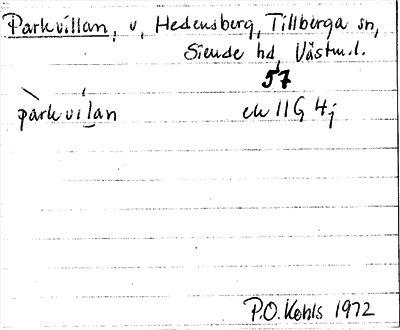 Parkvillan, v, Hedensberg, Tillberga sn,
Siende hd, Västm.l.
57
pàrkvílan ek 11G 4j
P.O. Kohls 1972